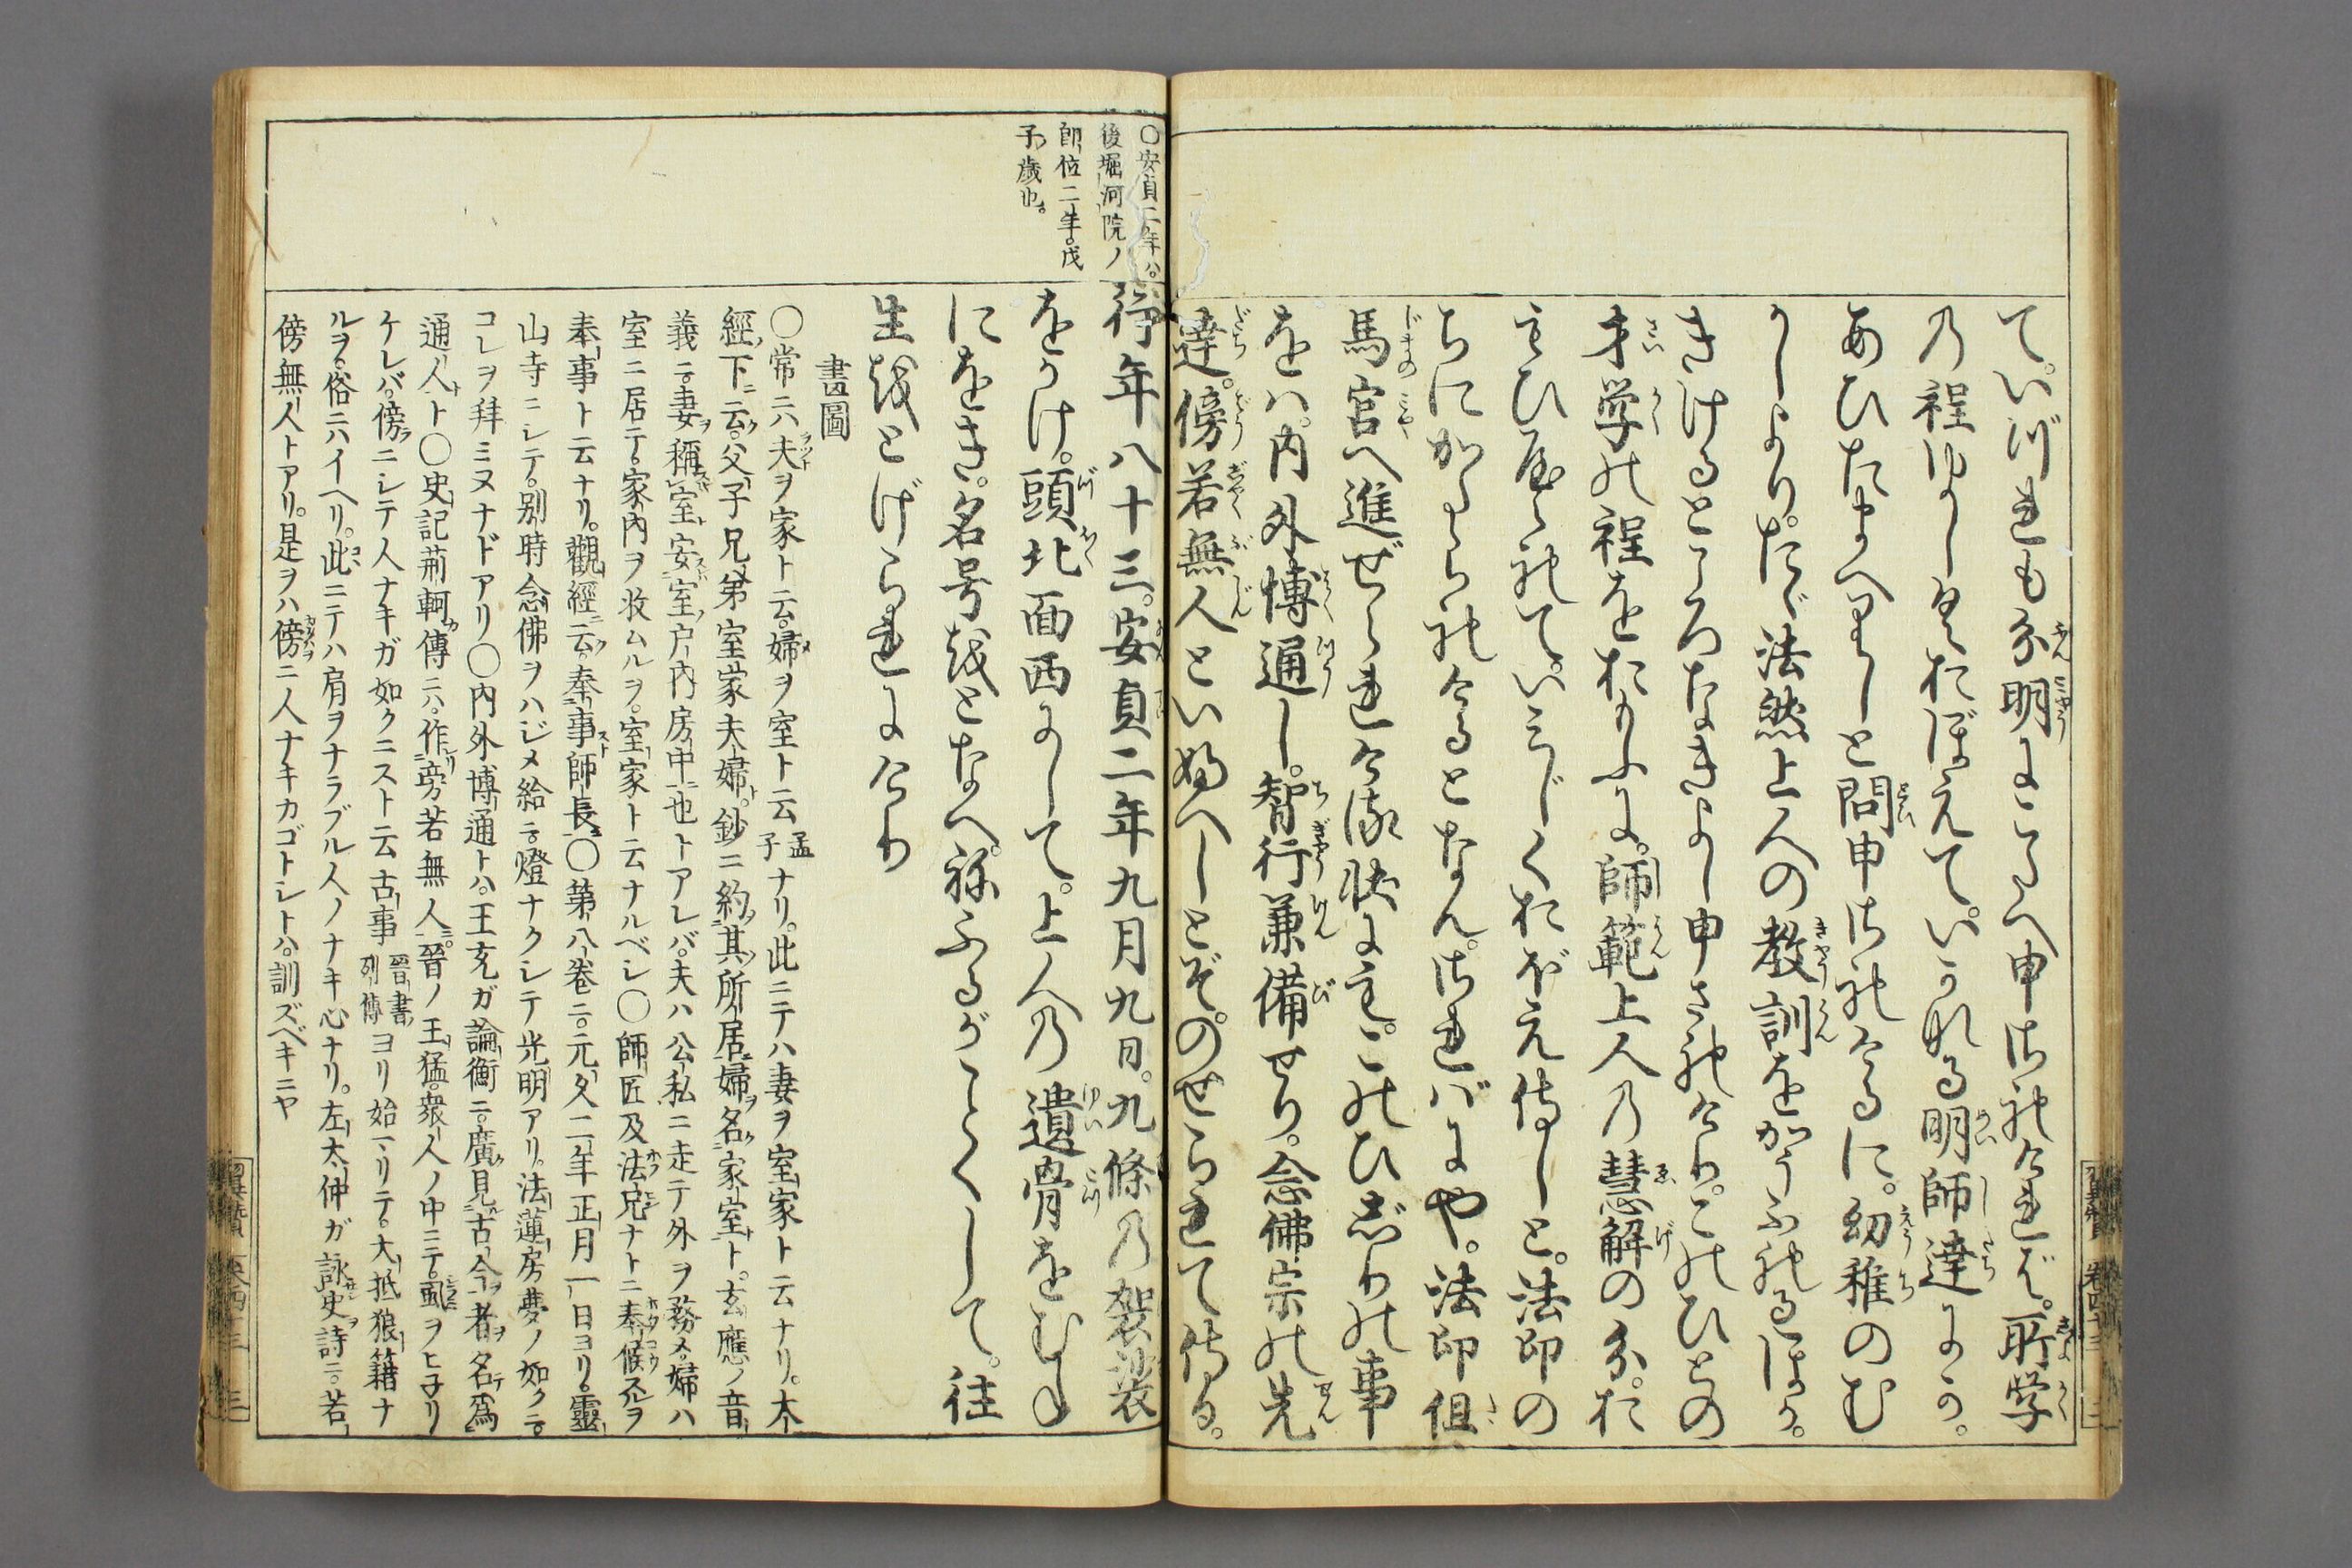 て。いづれも分明にこたへ申されければ。所学
の程ゆかしくおぼえて。いかなる明師達にか。
あひたまへりしと問申されけるに。幼稚のむ
かしより。たゞ法然上人の教訓をかうふれるほか。
きけるところなきよし申されけり。このひとの
才学の程をおもふに。師範上人の慧解の分。お
もひやられて。いみじくおぼえ侍しと。法印の
ちにかたられけるとなん。さればにや。法印但
馬宮へ進ぜられける状にも。このひじりの事
をハ。内外博通し。智行兼備せり。念佛宗の先
達。傍若無人といふへしとぞ。のせられて侍る。
〇安貞二年ハ。
後堀河院ノ
即位二年。戊
子歳也。
行年八十三。安貞二年九月九日。九條の袈裟
をかけ。頭北面西にして。上人の遺骨をむね
にをき。名号をとなへ。ねふるがことくして。往
生をとげられにけり
書圖
〇常ニハ夫ヲ家ト云。婦ヲ室ト云 孟子ナリ。此ニテハ妻ヲ室家ト云ナリ。大
經下ニ云。父子兄弟室家夫婦ト。鈔ニ約其所居。婦名家室ト。玄應ノ音
義ニ。妻稱室安室戸内房中也トアレバ。夫ハ公私ニ走テ外ヲ務メ。婦ハ
室ニ居テ。家内ヲ收ムルヲ。室家ト云ナルベシ〇師匠及法兄ナトニ奉候スルヲ
奉事ト云ナリ。觀經ニ云。奉事師長〇第八巻ニ。元久二年正月一日ヨリ。靈
山寺ニシテ。別時念佛ヲハジメ給ニ。燈ナクシテ光明アリ。法蓮房夢ノ如クニ。
コレヲ拜ミヌナドアリ〇内外博通トハ。王充ガ論衡ニ。廣見古今者。名爲
通人ト〇史記荊軻傳ニハ。作旁若無人。晉ノ王猛。衆人ノ中ニテ。虱ヲヒ子リ
ケレバ。傍ニシテ人ナキガ如クニスト云古事 晉書列傳 ヨリ始マリテ。大抵狼籍ナ
ルヲ。俗ニハイヘリ。此ニテハ肩ヲナラブル人ノナキ心ナリ。左太仲ガ詠史詩ニ。若
傍無人トアリ。是ヲハ傍ニ人ナキカゴトシトハ。訓ズベキニヤ